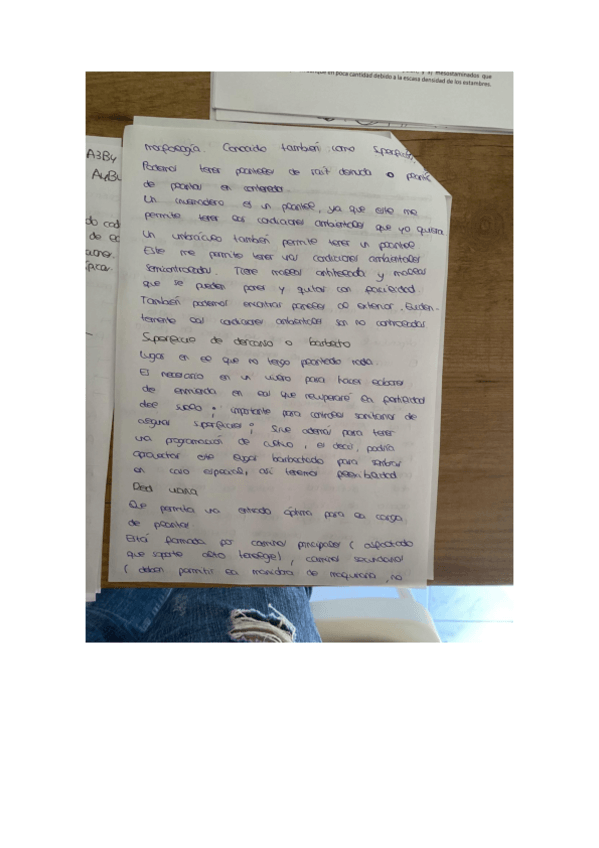 que
en poca cantidad debido a la escasa densidad de los estambres.
A3B4
A4B4
morfología. Conocido también como superficie
Podemos tener planteles de raíz desnuda o
de plantas en contenedor.
Un invernadero es un plantel, ya que este me
permite tener las condiciones ambientales que yo quiera
Un umbráculo también permite tener un plantel
Este me permite tener unas condiciones ambientales
semicontroladas. Tiene mallas antihelada y mallas
que se pueden poner y quitar con facilidad.
También podemos encontrar planteles al exterior. Eviden-
temente las condiciones ambientales son no controladas
Superficie de descanso o barbecho
Lugar en el que no tengo plantado nada.
Es necesario en un vivero para hacer labores
de enmienda en las que recuperaré la fertilidad
del suelo; importante para controles sanitarios de
algunas superficies; Sirve además para tener
una programación de cultivo, es decir, podría
aprovechar este lugar barbechado para sembrar
en caso especial, así tenemos flexibilidad.
Red viaria
Que permita una entrada óptima para la carga
de plantas.
Está formada por caminos principales (asfaltado
que soporte alto tonelaje), caminos secundarios
(deben permitir la maniobra de maquinaria, no